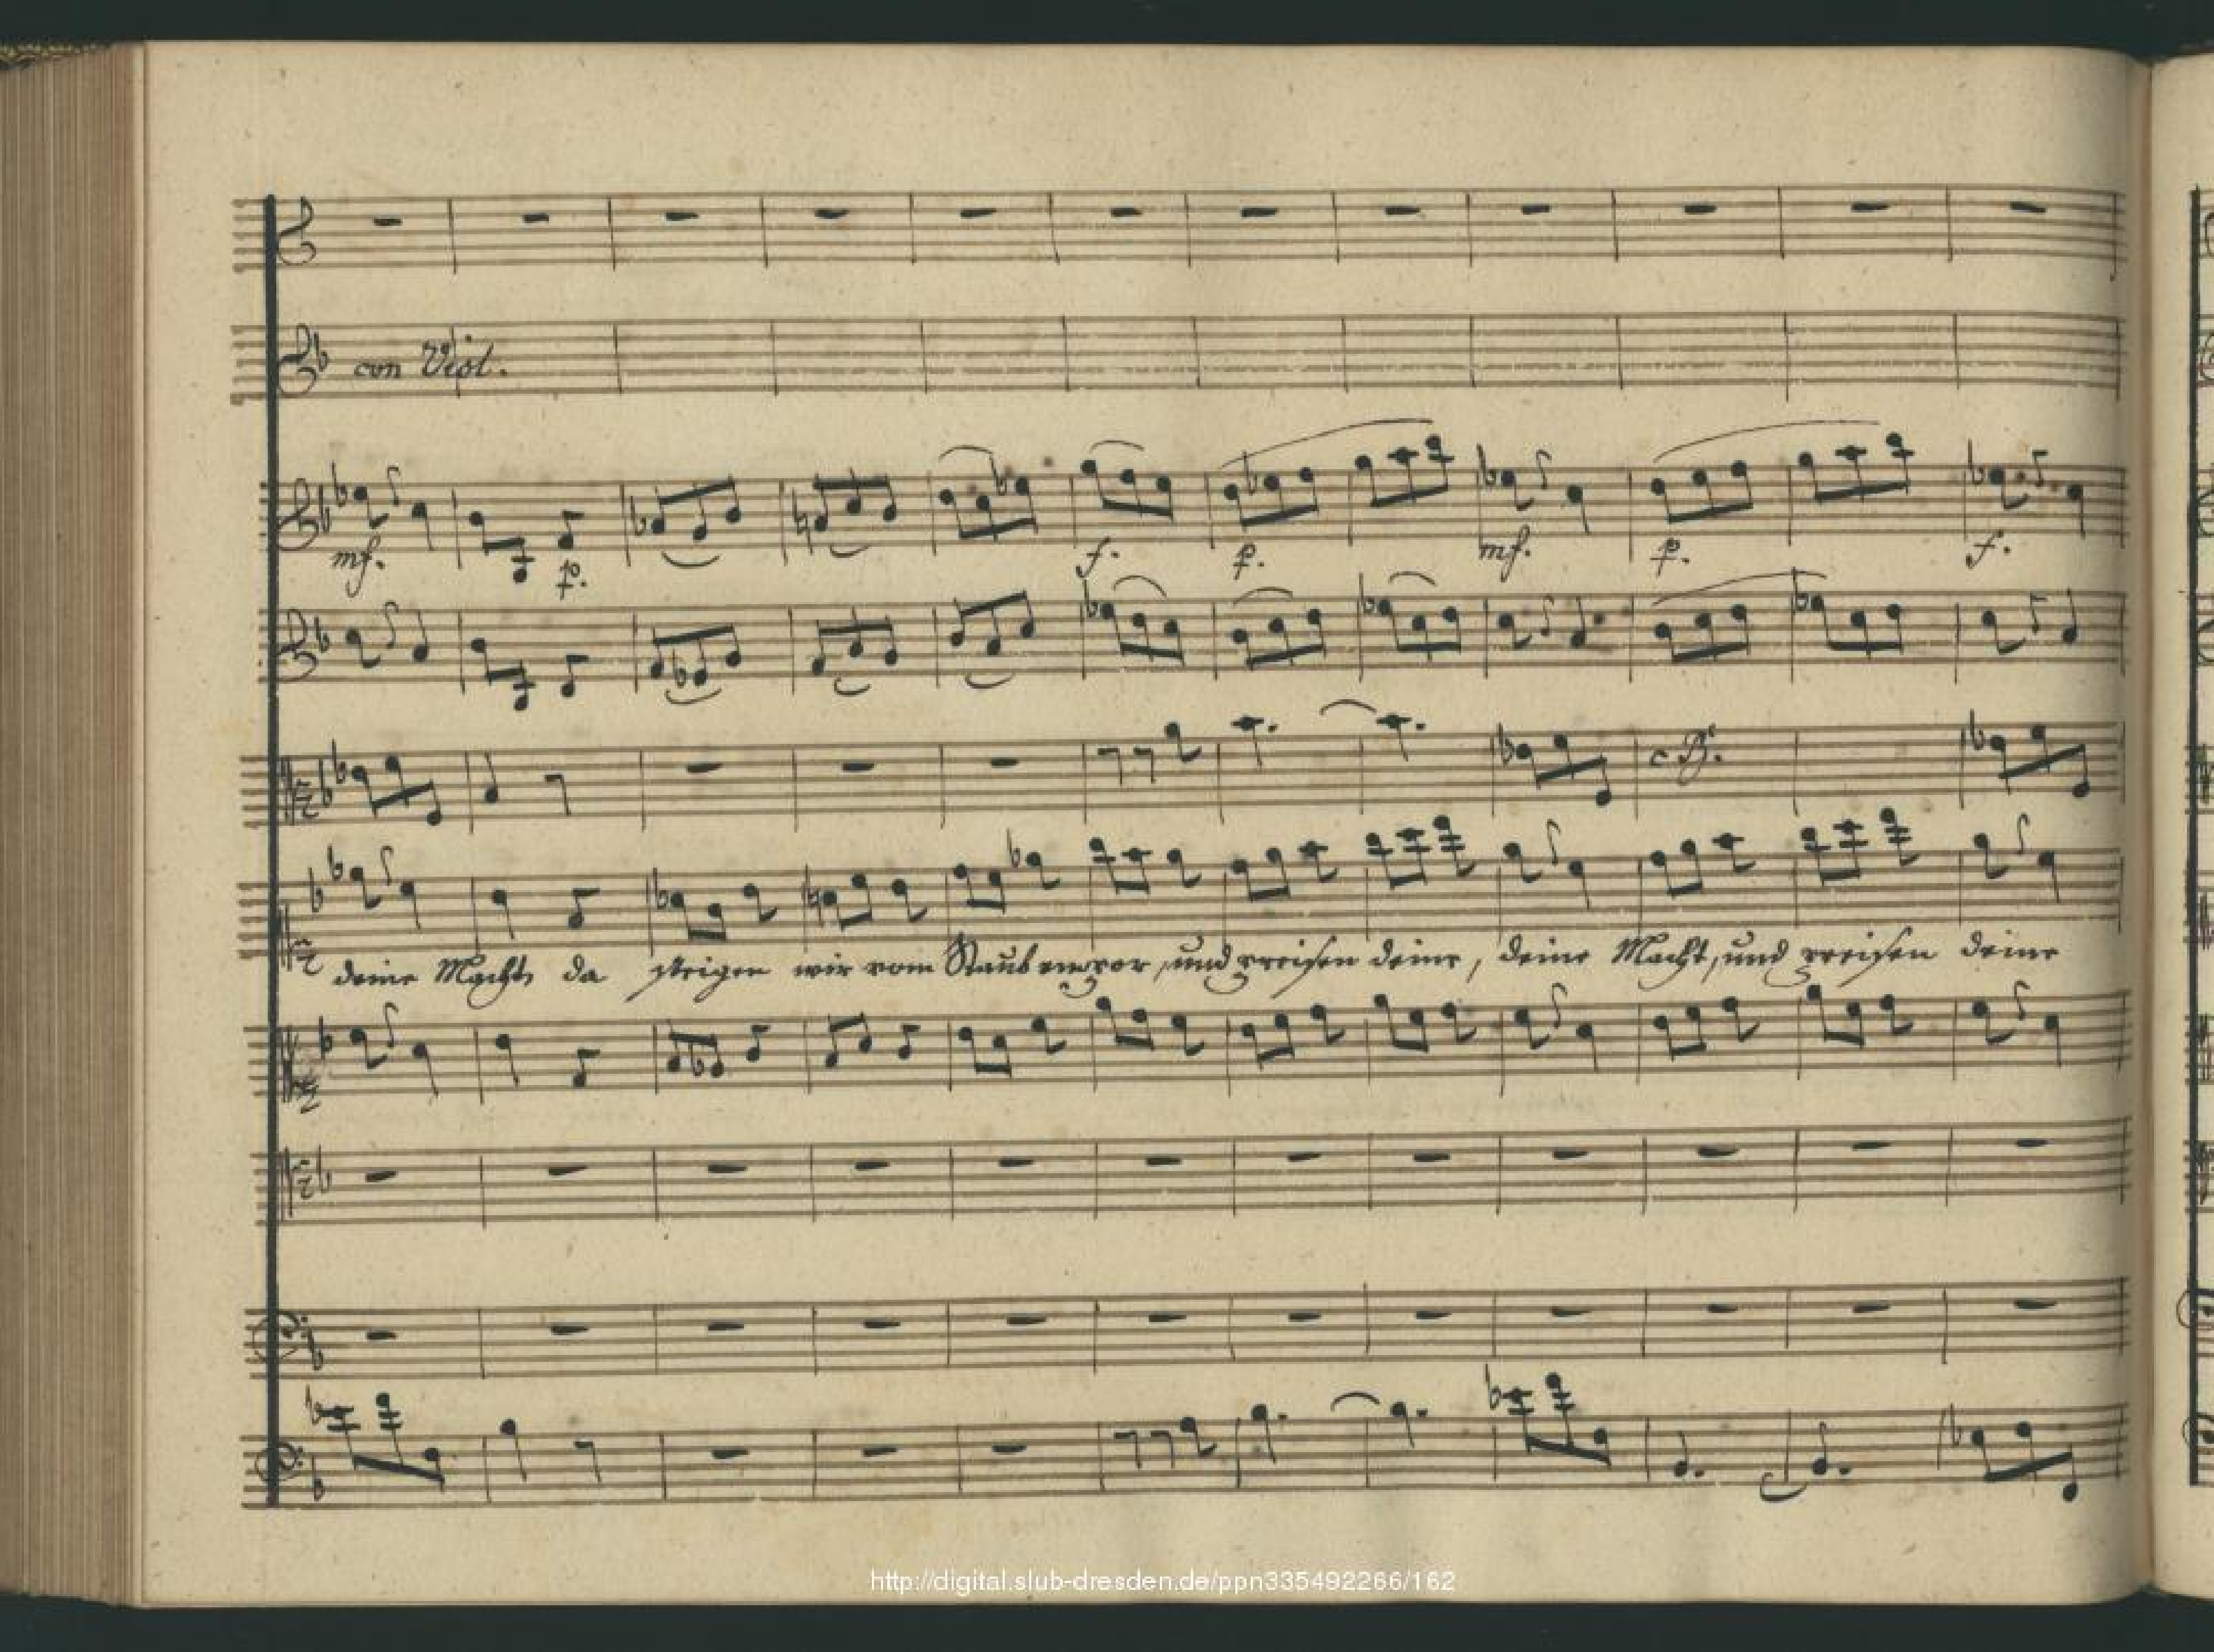 con Viol.
mf. p. f. p. mf. p. f.
c B.
deine Macht, da steigen wir vom Staub empor, und preisen deine, deine Macht, und preisen deine
http://digital.slub-dresden.de/ppn335492266/162